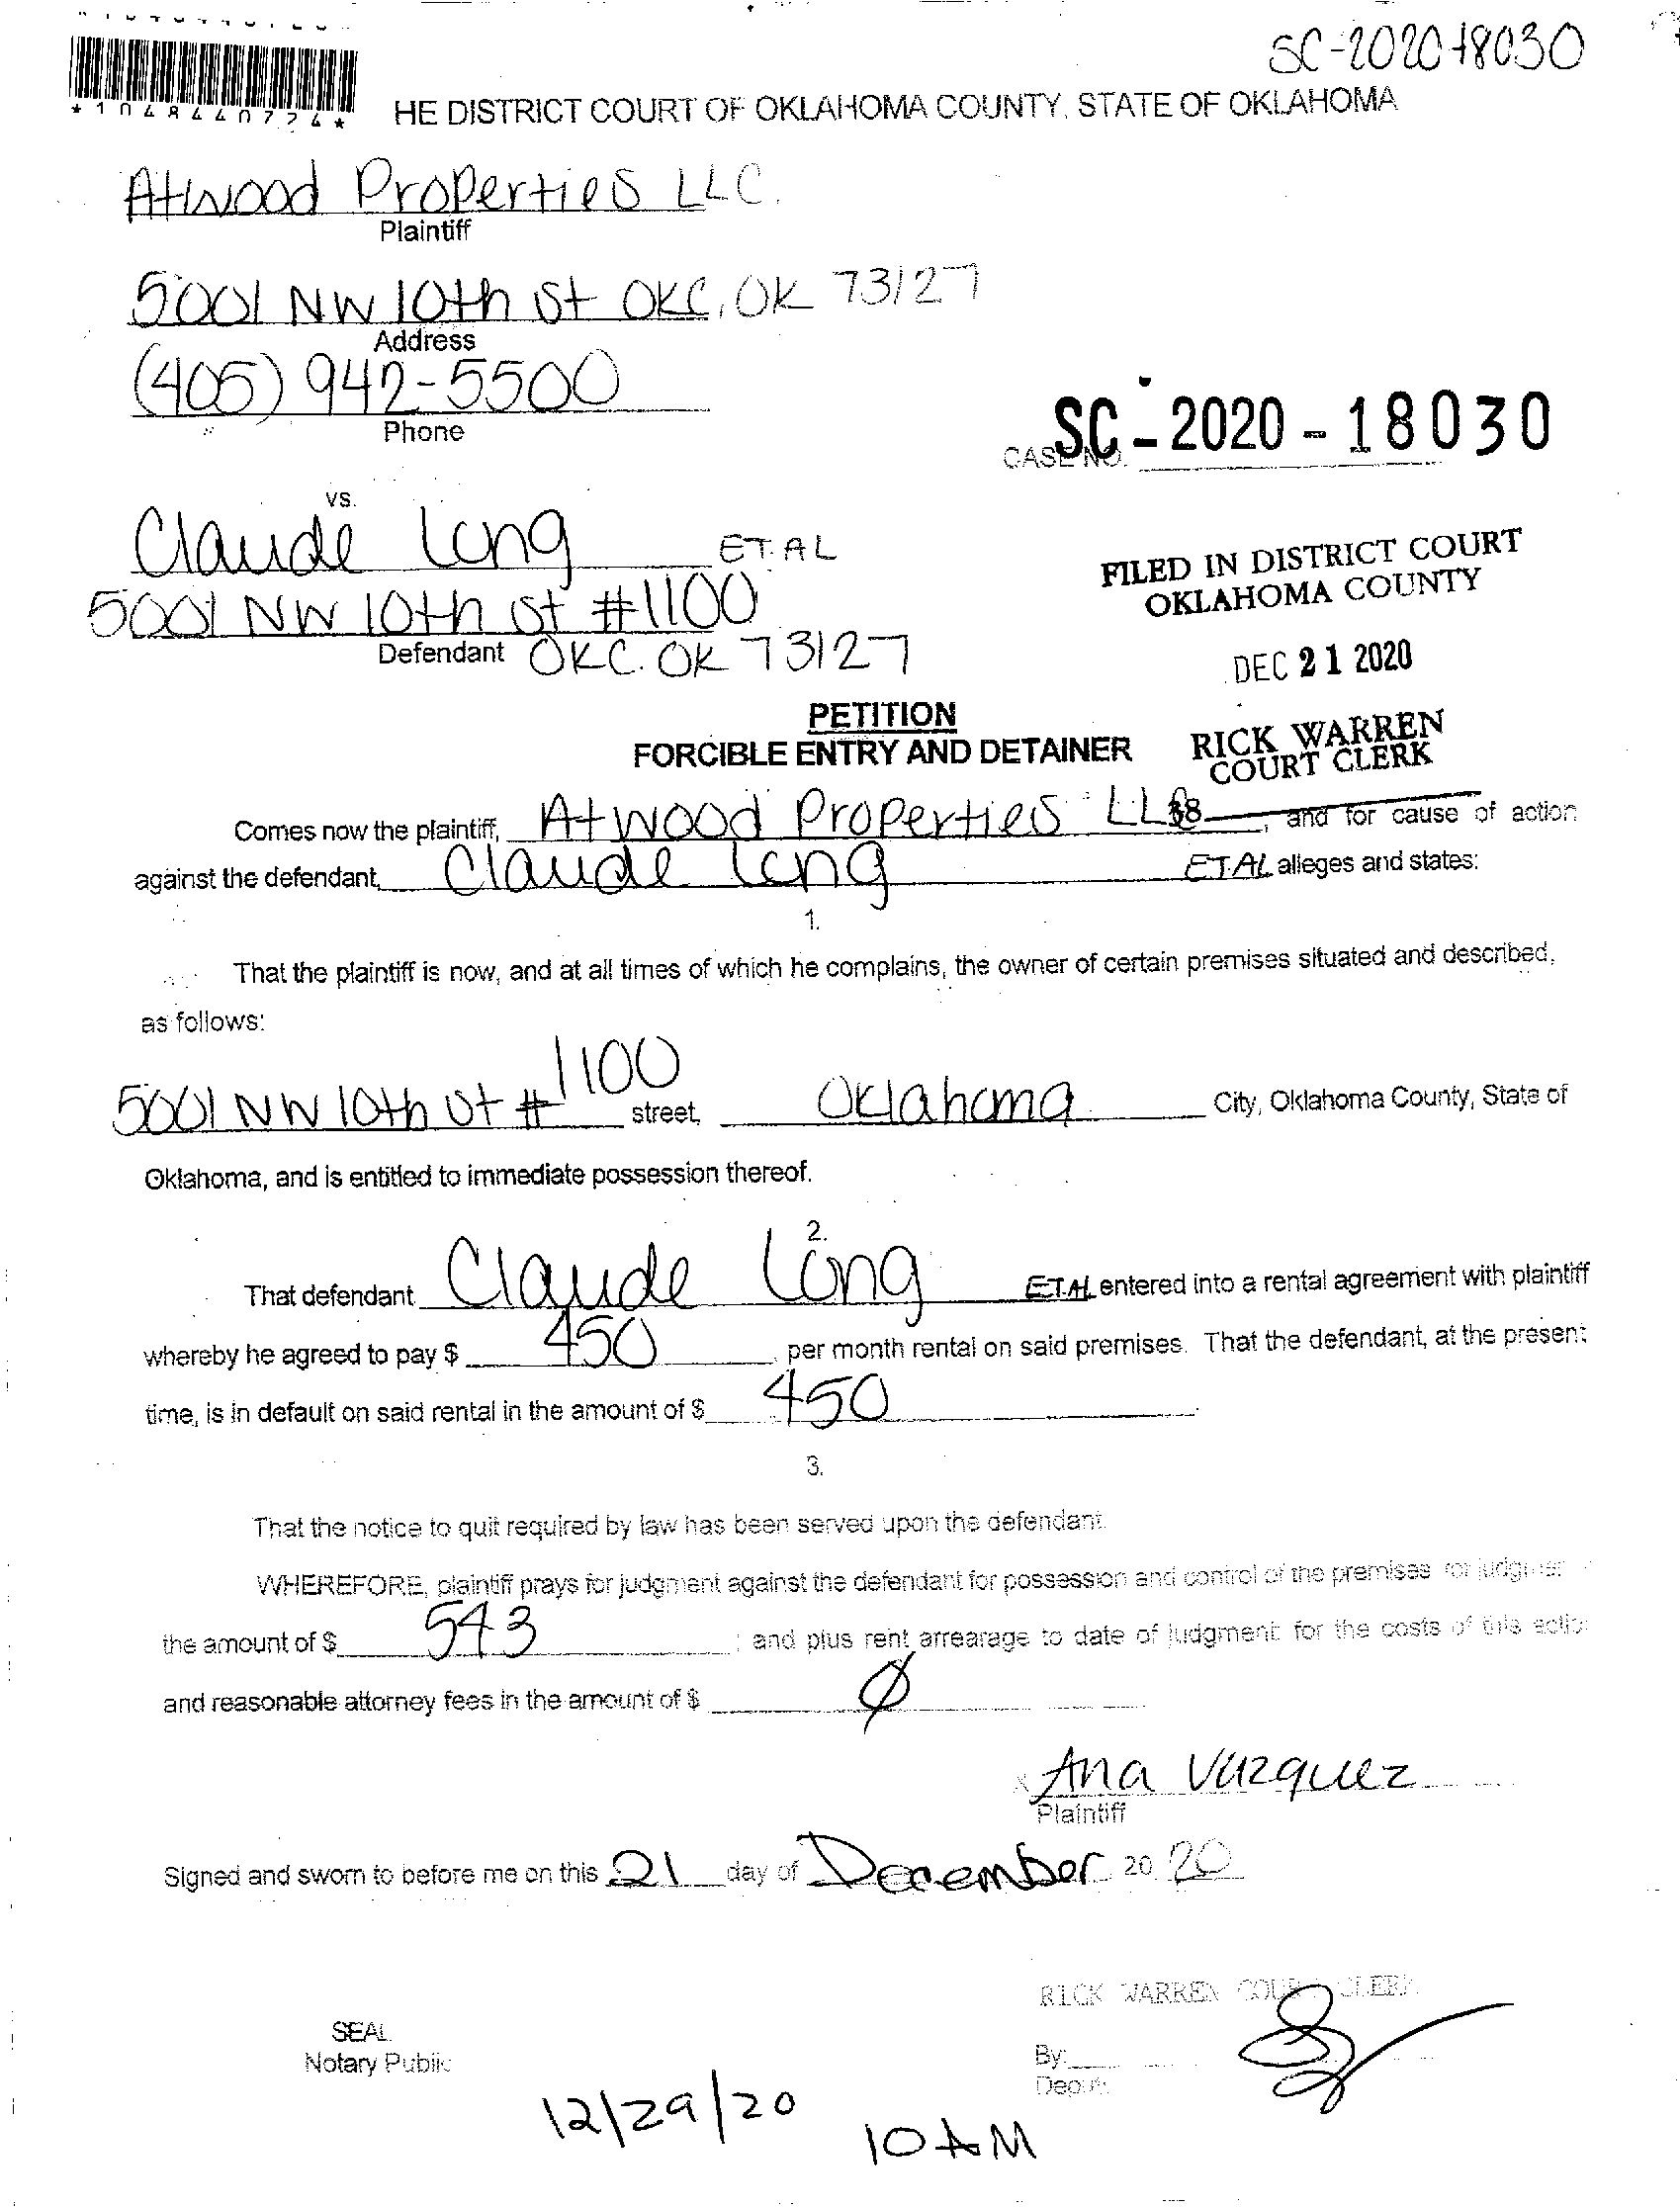 SC-2020-18030
*1048440774*
HE DISTRICT COURT OF OKLAHOMA COUNTY, STATE OF OKLAHOMA
Atwood Properties LLC.
Plaintiff
5001 NW 10th St OKC, OK 73127
Address
(405) 942-5500
Phone
CASE NO. SC-2020-18030
vs.
Claude Long ET. AL
5001 NW 10th St #1100
Defendant OKC. OK 73127
FILED IN DISTRICT COURT
OKLAHOMA COUNTY
DEC 21 2020
RICK WARREN
COURT CLERK
38
PETITION
FORCIBLE ENTRY AND DETAINER
Comes now the plaintiff, Atwood Properties LLC, and for cause of action
against the defendant, Claude Long ET.AL alleges and states:
1.
That the plaintiff is now, and at all times of which he complains, the owner of certain premises situated and described,
as follows:
5001 NW 10th St #1100 street, Oklahoma City, Oklahoma County, State of
Oklahoma, and is entitled to immediate possession thereof.
2.
That defendant Claude Long ET.AL entered into a rental agreement with plaintiff
whereby he agreed to pay $ 450 per month rental on said premises. That the defendant, at the present
time, is in default on said rental in the amount of $ 450
3.
That the notice to quit required by law has been served upon the defendant.
WHEREFORE, plaintiff prays for judgment against the defendant for possession and control of the premises for
the amount of $ 543 ; and plus rent arrearage to date of judgment: for the costs of this
and reasonable attorney fees in the amount of $ Ø
x Ana Vazquez
Plaintiff
Signed and sworn to before me on this 21 day of December 20 20
RICK WARREN COURT CLERK
SEAL
Notary Public
By:
Deputy
12/29/20
10 AM